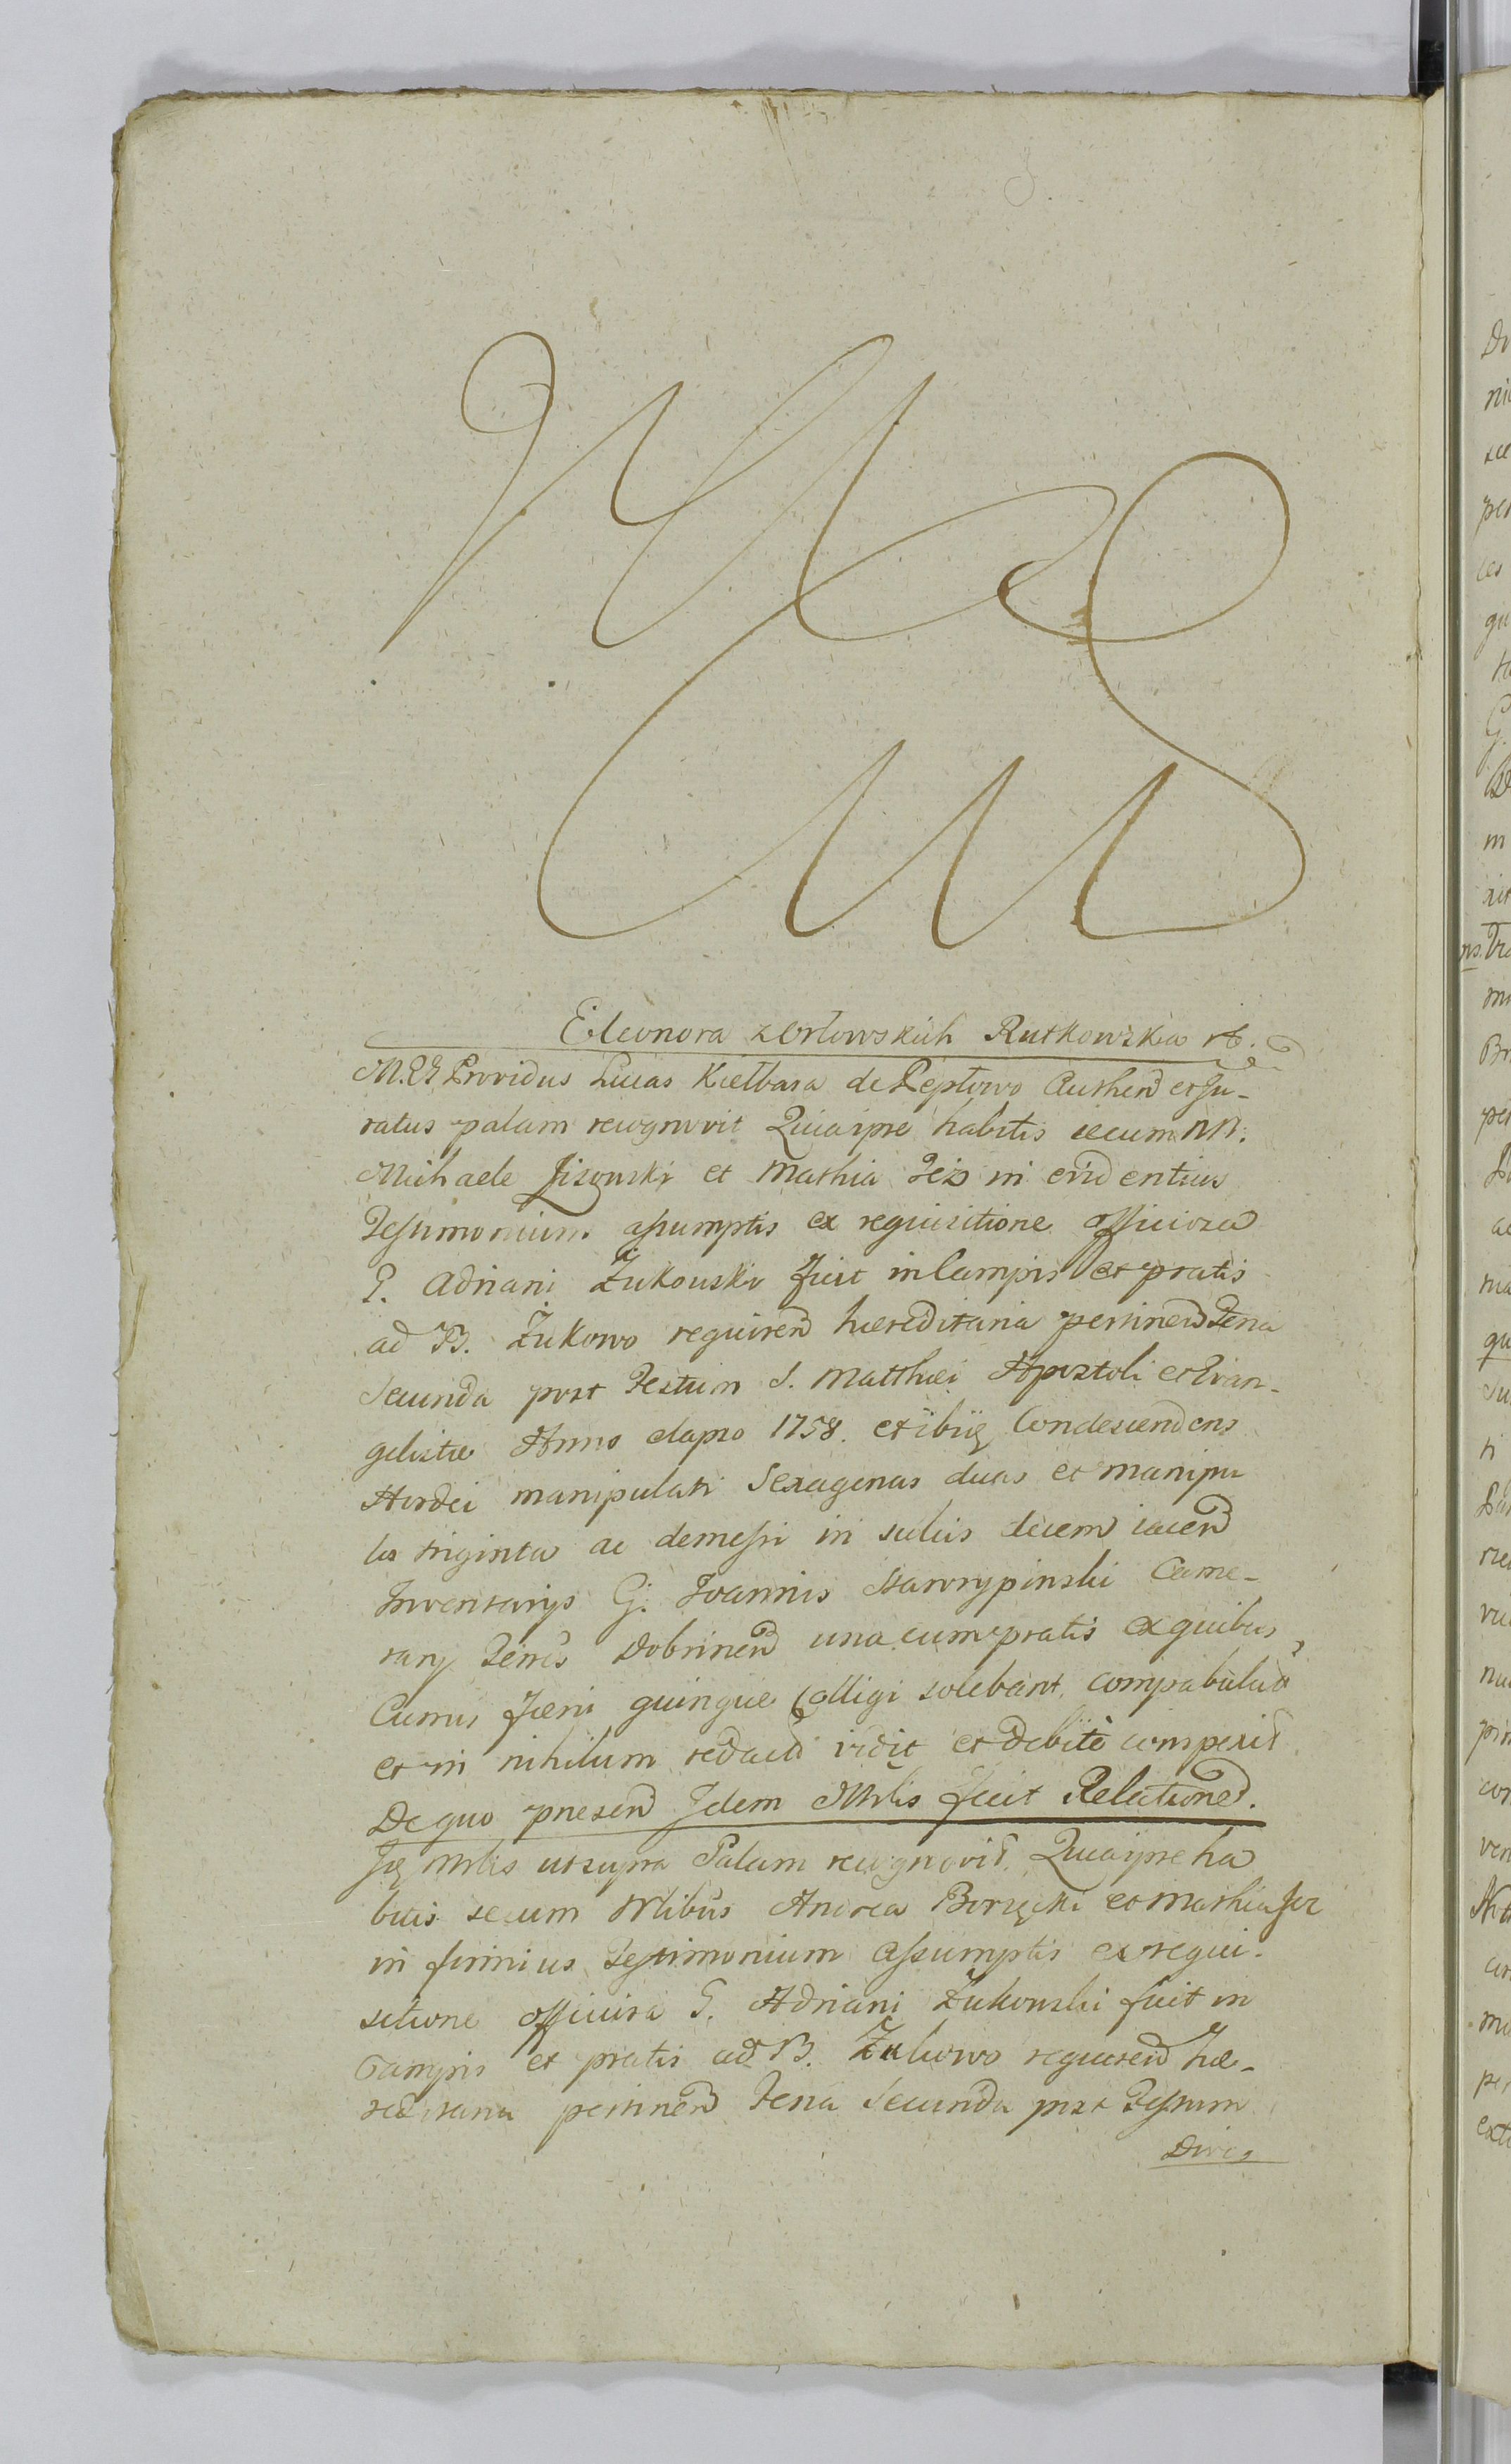 Eleonora z Orłowskich Rutkowska
Providus Lucas Kiełbasa de Authend et Ju-
ratus palam recognovit Quia ipse habitis secum NN.
Michaele et Mathia in evidentius
Testimonium assumptis ex requisitione officiosa
G. Adriani Żukowski fuit in Campis et pratis
ad B. Żukowo requirend haereditaria pertinend Feria
Secunda post Festum S. Matthaei Apostoli et Evan-
gelistae Anno elapso 1758. et ibiq Condescendens
Hordei manipulati Sexagenas duas et manipu
los triginta ac demessi in sulcis decem iacend
Inventarys G. Joannis Came-
rary Terrs Dobrinend una cum pratis ex quibus
Currus foeni quinque Colligi solebant, compabulat
et in nihilum redact vidit et debite comperit
De quo praesend Idem Mrlis fecit Relationed.
Iq Mrlis ut supra Palam recognovit Quia ipse ha
bitis secum Nlibus Andrea et Mathia
in firmius Testimonium assumptis ex requi-
sitione officiosa G. Adriani Żukowski fuit in
Campis et pratis ad B. Żukowo requirend hae-
reditaria pertinend Feria Secunda post Festum